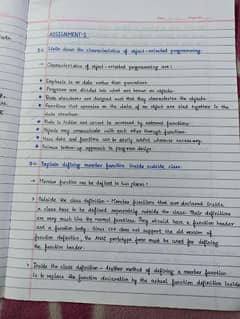 ASSIGNMENT-1
Write down the characteristics of object-oriented programming
→ Characteristics of object-oriented programming are:
• Emphasis is on data rather than procedure.
• Programs are divided into what are known as objects.
• Data structures are designed such that they characterize the objects.
• Functions that operate on the data of an object are tied together in the
data structure.
• Data is hidden and cannot be accessed by external functions.
• Objects may communicate with each other through functions.
• New data and functions can be easily added whenever necessary.
• Follows bottom-up approach in program design.
Explain defining member function inside outside class
→ Member function can be defined in two places:
• Outside the class definition - Member functions that are declared inside
a class have to be defined separately outside the class. Their definitions
are very much like the normal functions. They should have a function header
and a function body. Since C++ does not support the old version of
function definition, the ANSI prototype form must be used for defining
the function header.
• Inside the class definition - Another method of defining a member function
is to replace the function declaration by the actual function definition inside